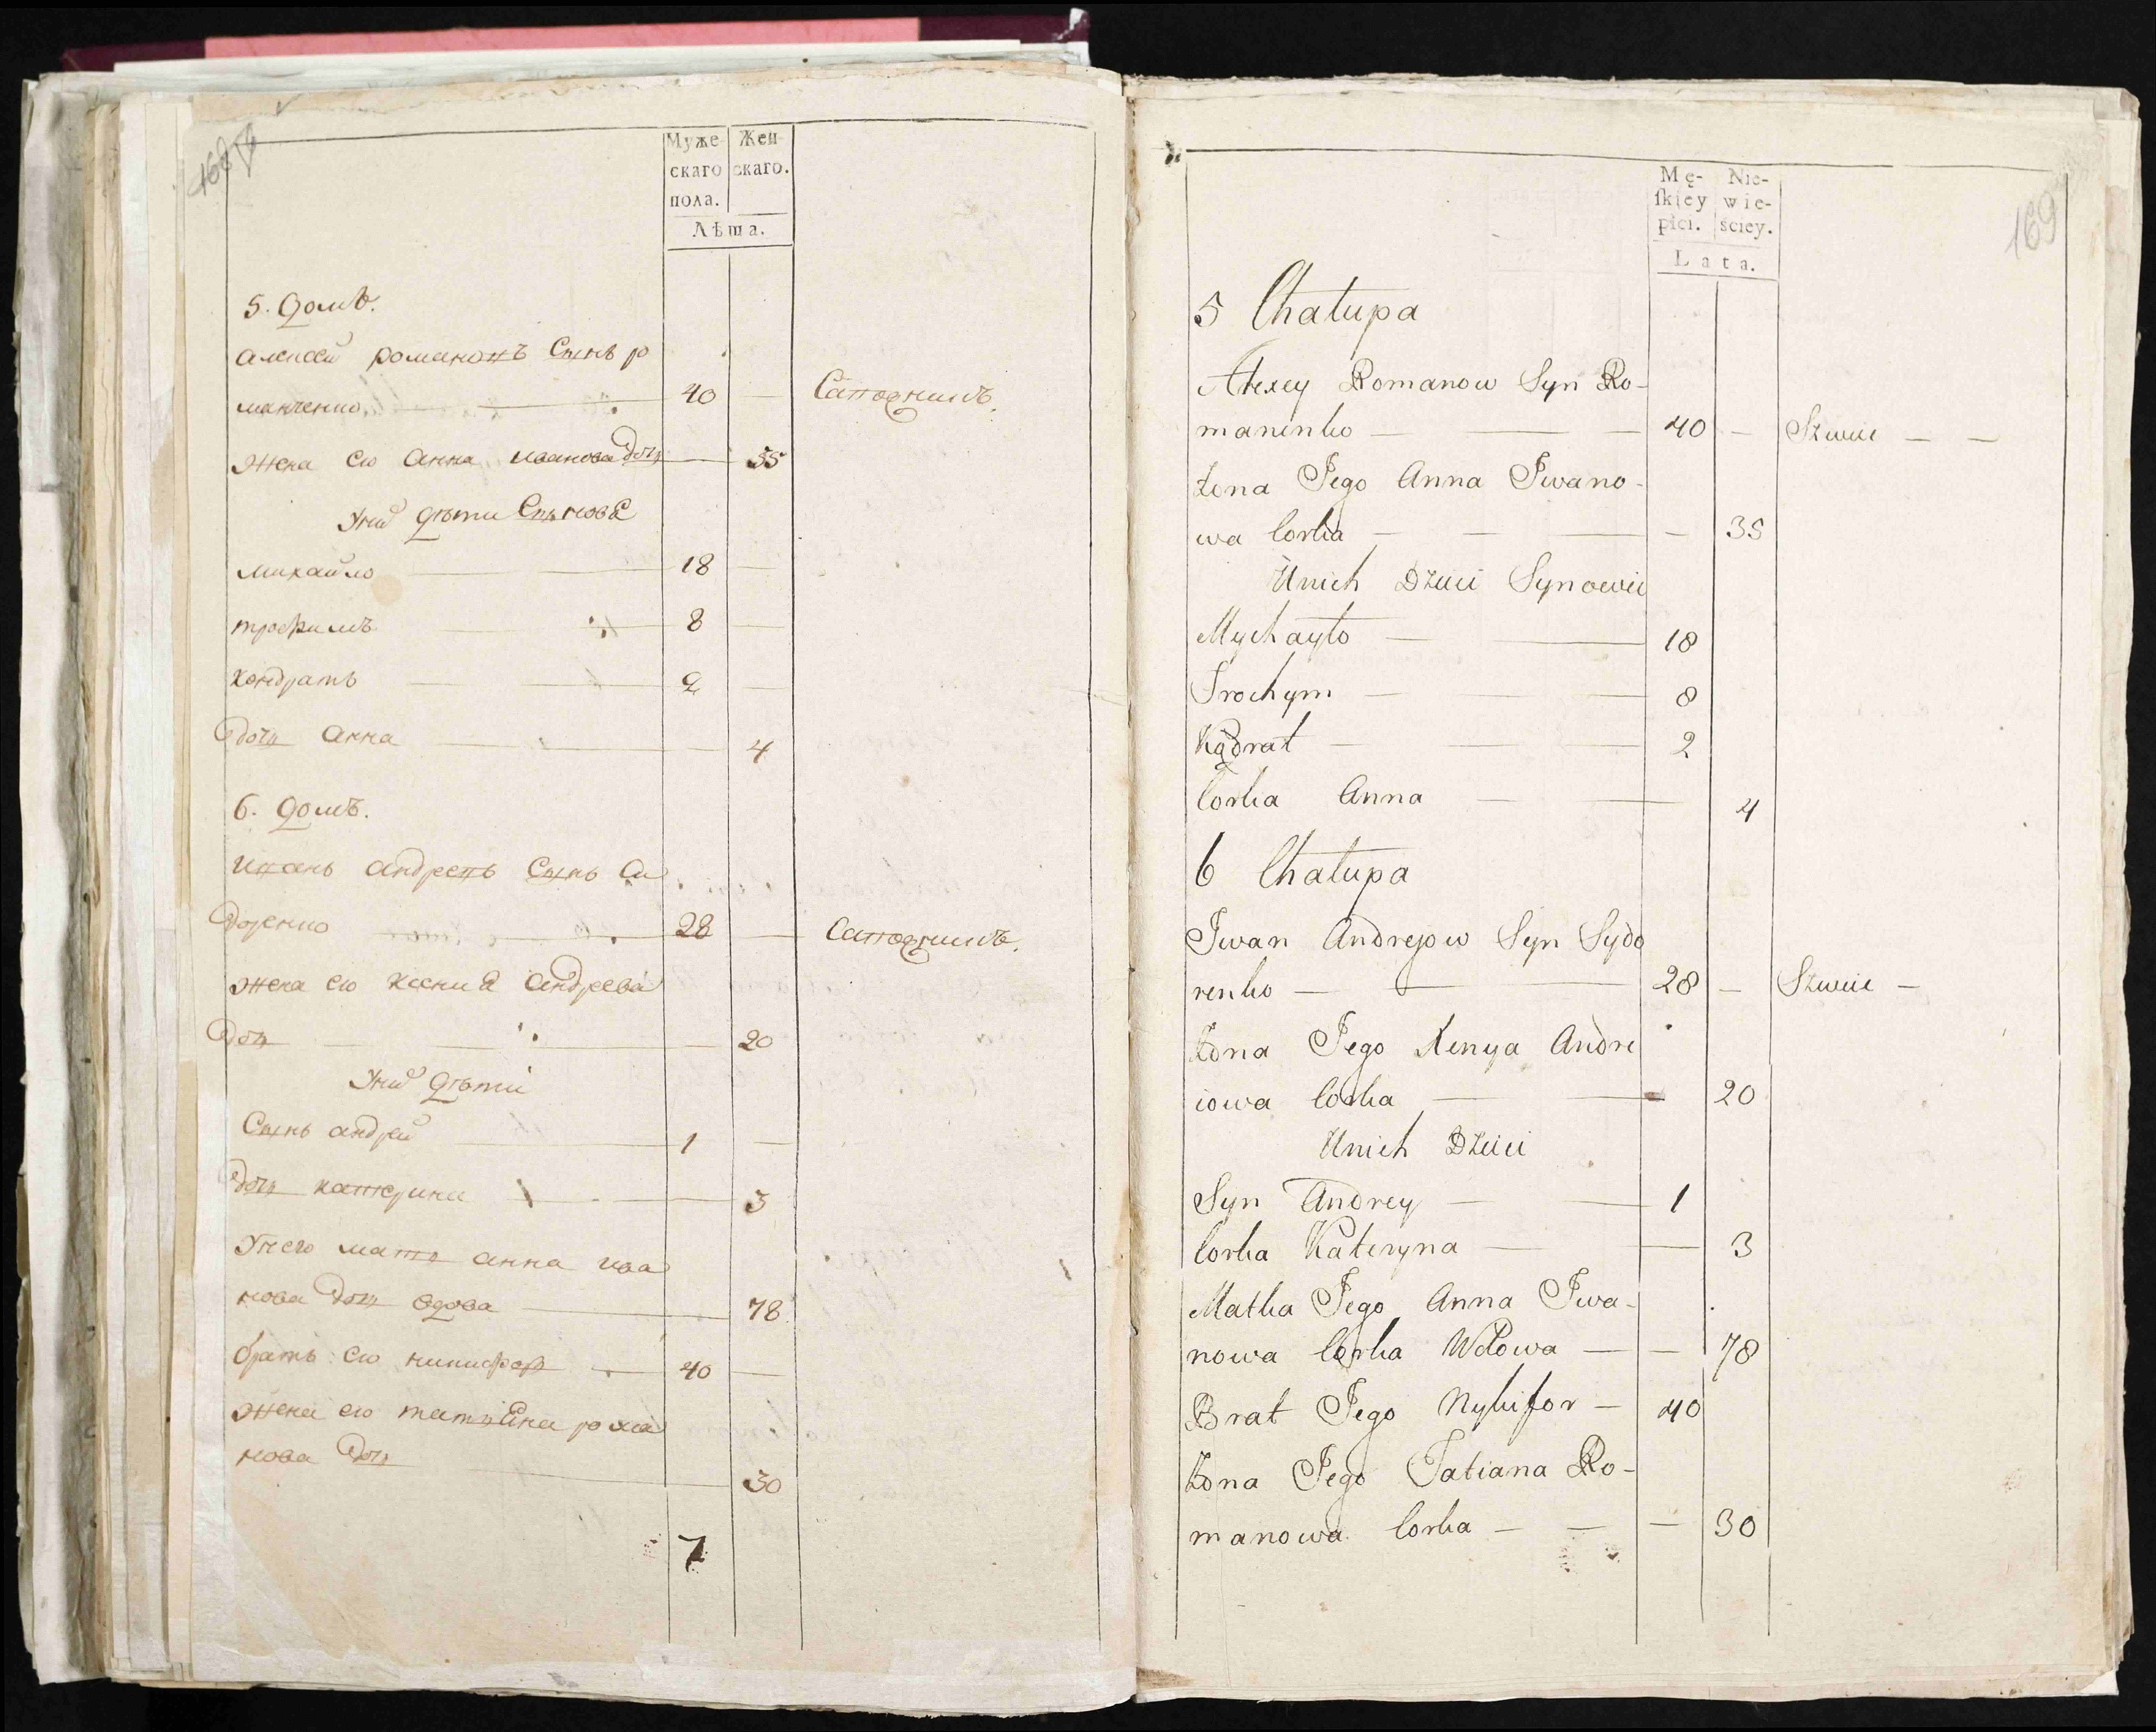 Муже-
скаго
пола.
Жен-
скаго.
Лѣта.
5. домъ.
алексѣй романовъ Сынъ ро
манченко 40 — Сапожникъ
Жена его анна иванова дочь — 35
Уних дѣти Сыновѣ
михайло — 18 —
трофимъ — 8 —
кондратъ — 2 —
дочь анна — 4
6. домъ.
иванъ андреевъ Сынъ Си
доренко — 28 — Сапожникъ.
жена его ксения андреева
дочь — 20
Уних дѣти
Сынъ андрей — 1 —
дочь катерина — 3
Унего мать анна ива
нова дочь вдова — 78
братъ его никифоръ — 40 —
жена его татияна рома
нова дочь — 30
7
169
Mę-
skiey
płci.
Nie-
wie-
ściey.
Lata.
5 Chałupa
Alexey Romanow Syn Ro-
manenko — — — 40 — Szwiec — —
Żona Jego Anna Iwano-
wa Corka — — — — 35
Unich Dzieci Synowie
Mychayło — — 18
Trochym — — — 8
Kądrat — — — 2
Corka Anna — — 4
6 Chałupa
Iwan Andrejow Syn Sydo
renko — — — 28 — Szwiec —
Żona Jego Xenya Andre
iowa Corka — — — 20
Unich Dzieci
Syn Andrey — — 1
Corka Kateryna — — 3
Matka Jego Anna Iwa-
nowa Corka Wdowa — — 78
Brat Jego Nykifor — 40
Żona Jego Tatiana Ro-
manowa Corka — — — 30